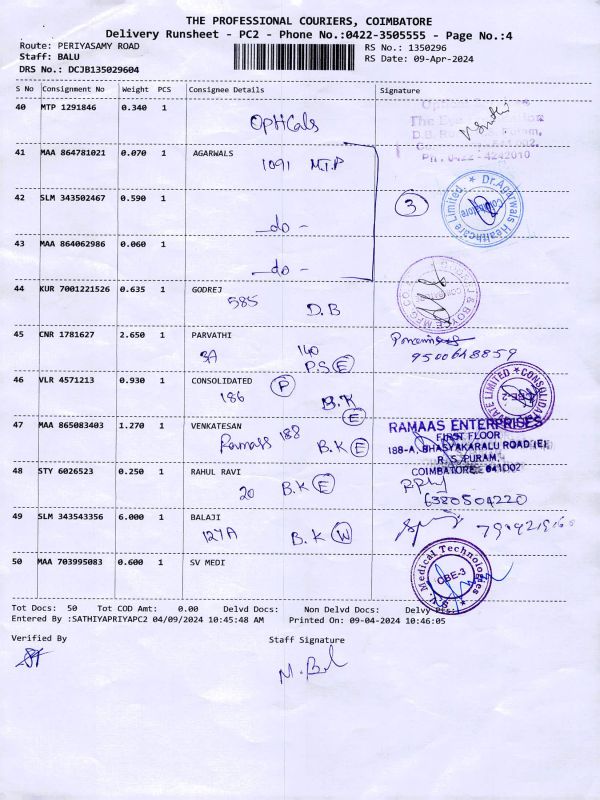 THE PROFESSIONAL COURIERS, COIMBATORE
Delivery Runsheet - PC2 - Phone No.:0422-3505555 - Page No.:4
Route: PERIYASAMY ROAD
RS No.: 1350296
Staff: BALU
RS Date: 09-Apr-2024
DRS No.: DCJB135029604
S No Consignment No Weight PCS Consignee Details Signature
40 MTP 1291846 0.340 1
OPtICals
The Eye
D.B. Ro
Puram,
Ph : 0422 - 4242010
41 MAA 864781021 0.070 1 AGARWALS
1091 M.T.P
42 SLM 343502467 0.590 1
-do-
3
Dr.Agarwals Healthcare Limited.
Coimbatore
43 MAA 864062986 0.060 1
-do-
44 KUR 7001221526 0.635 1 GODREJ
585 D.B
& BOYCE MFG. CO.
45 CNR 1781627 2.650 1 PARVATHI
3A 140
P.S E
9500648859
46 VLR 4571213 0.930 1 CONSOLIDATED P
186 B.K
E
CONSOLIDATE
LIMITED
CBE-2
47 MAA 865083403 1.270 1 VENKATESAN
Ramass 188 B.K E
RAMAAS ENTERPRISES
FIRST FLOOR
188-A, BHASYAKARALU ROAD (E),
R. S. PURAM,
COIMBATORE. 641002
48 STY 6026523 0.250 1 RAHUL RAVI
20 B.K E
6380504220
49 SLM 343543356 6.000 1 BALAJI
127A B.K W
50 MAA 703995083 0.600 1 SV MEDI
S.V. Medical Technologies
CBE-3
Tot Docs: 50 Tot COD Amt: 0.00 Delvd Docs: Non Delvd Docs: Delvy Pts:
Entered By :SATHIYAPRIYAPC2 04/09/2024 10:45:48 AM Printed On: 09-04-2024 10:46:05
Verified By Staff Signature
M. Bal